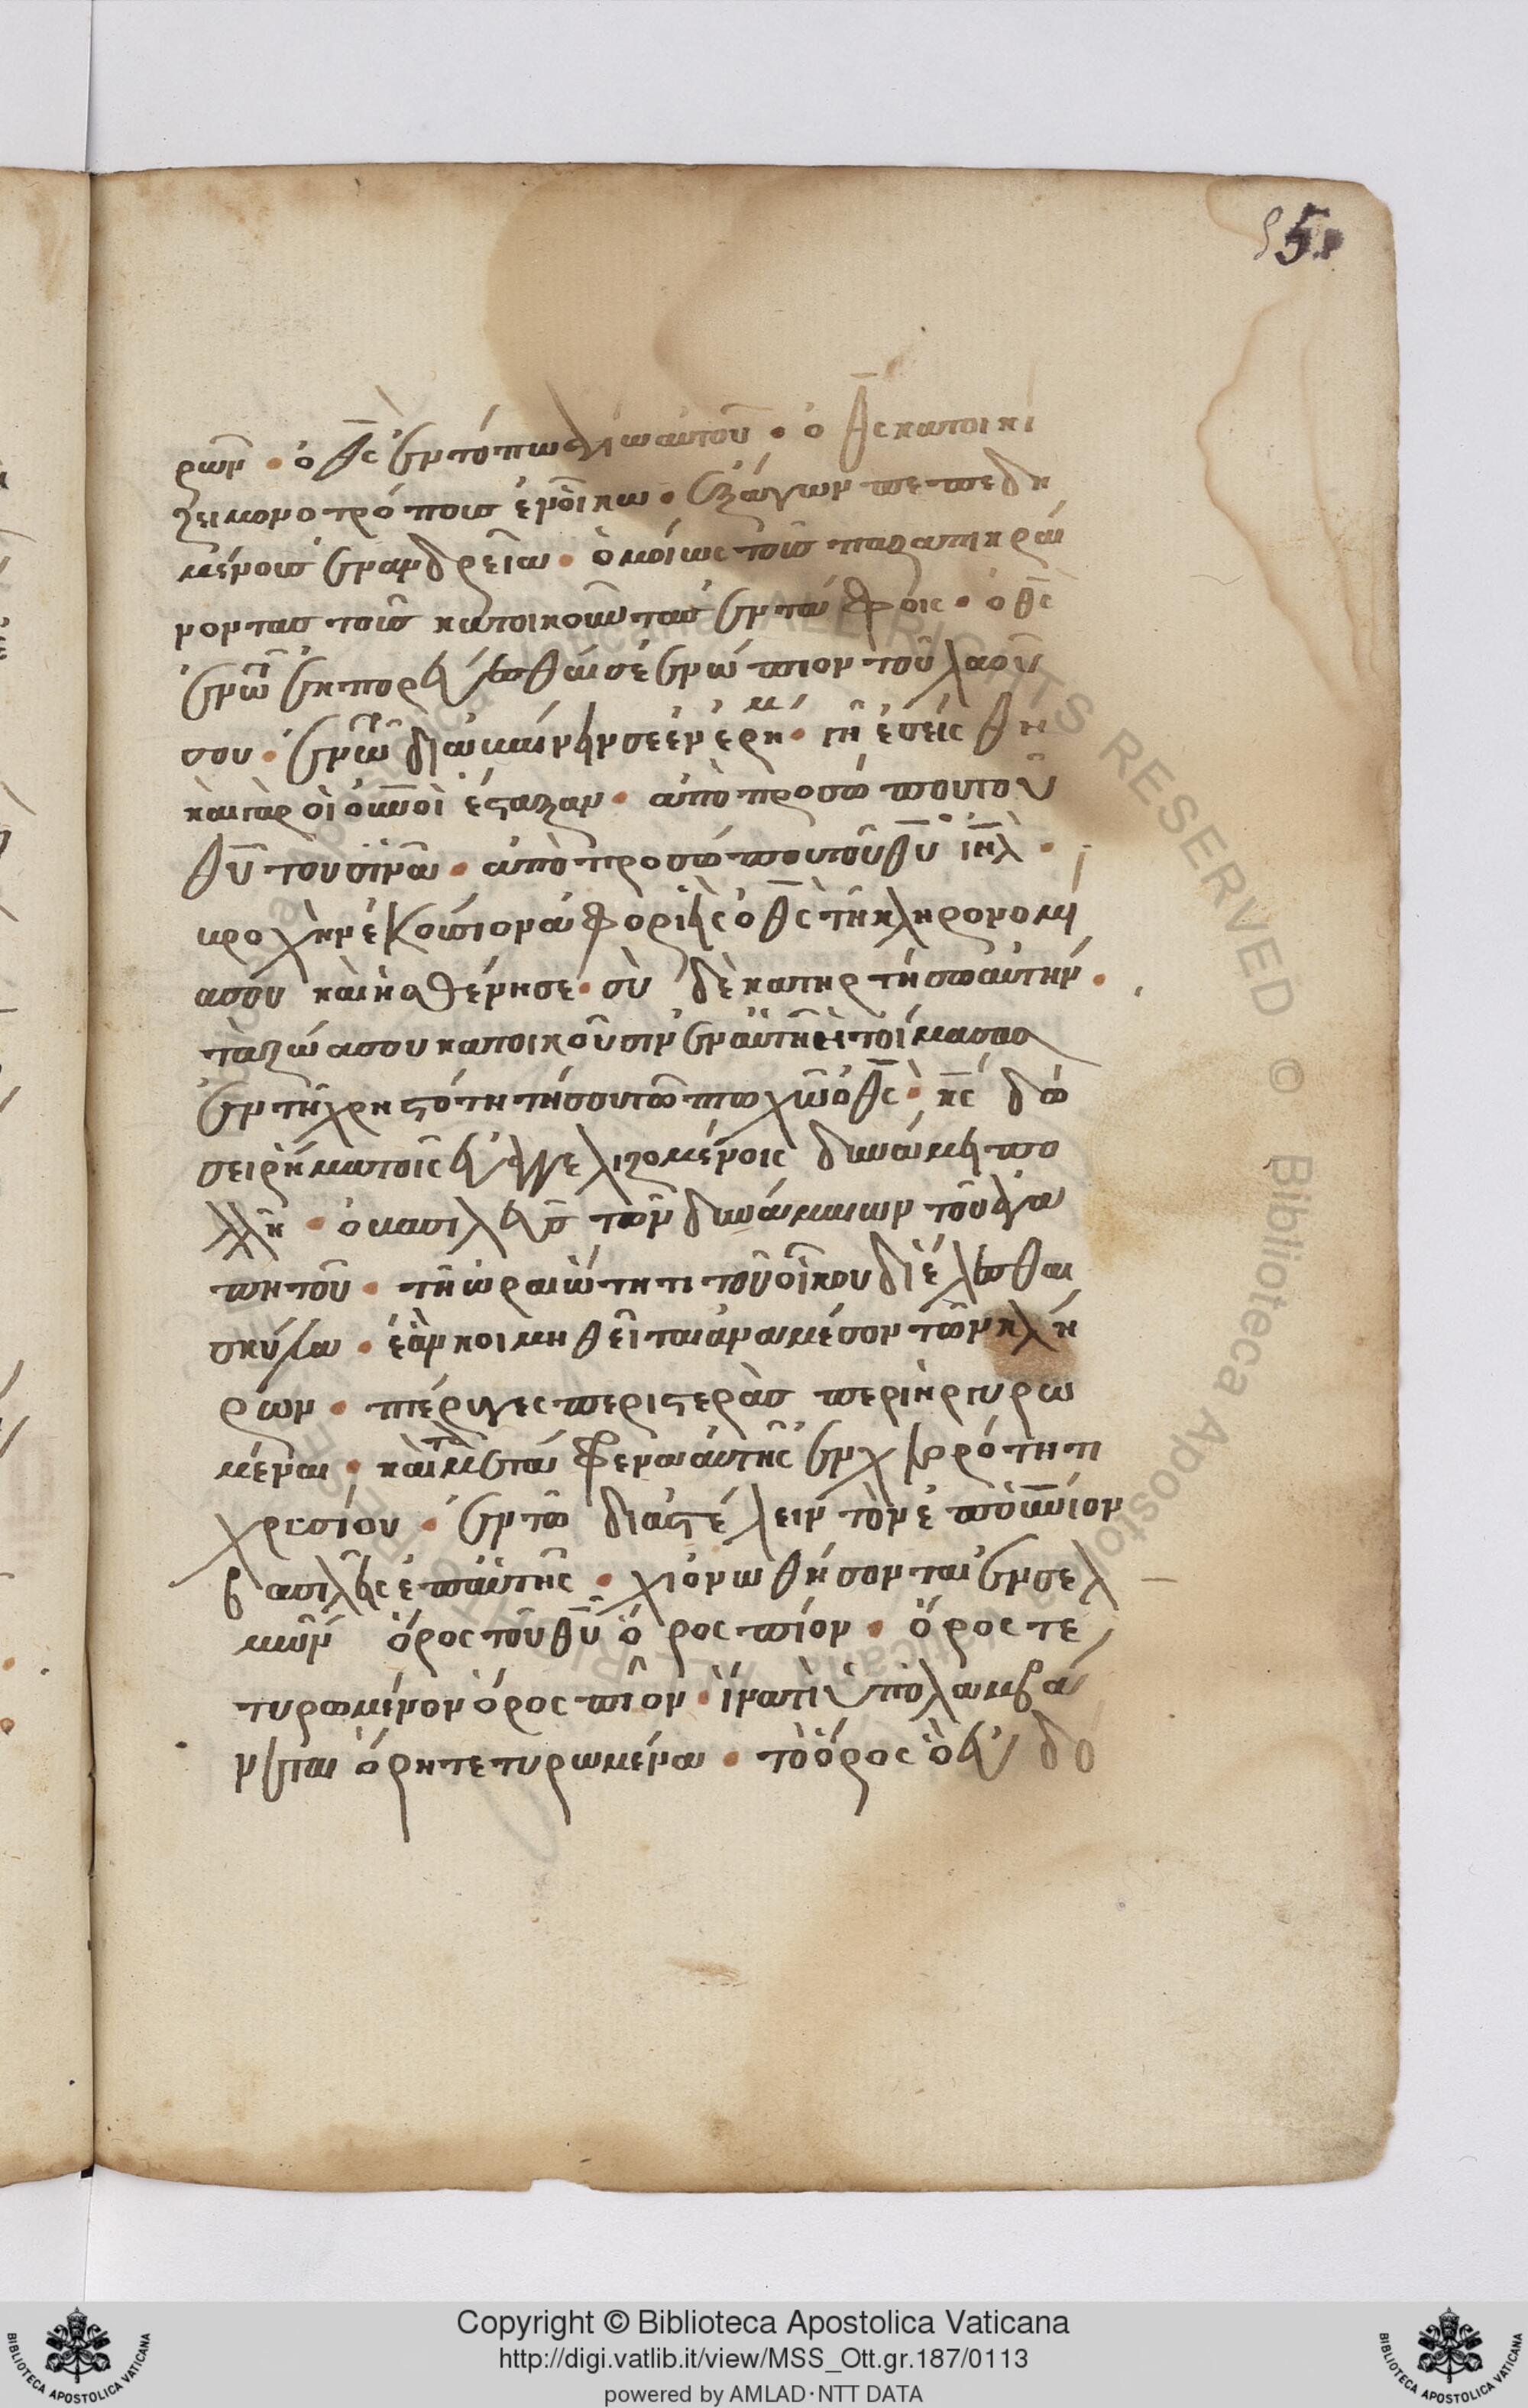 55
ρῶν · ὁ θς ἐν τόπω ἁγίω αὐτοῦ · ὁ θς κατοικί
ζει μονοτρόπους ἐν οἴκω · ἐξάγων πεπεδη
μένους ἐν ανδρεία · ὁμοίως τοὺς παραπικραί
νοντας τοὺς κατοικοῦντας ἐν τάφοις · ὁ θς
ἐν τῶ ἐκπορεύεσθαί σε ἐνώπιον τοῦ λαοῦ
σου · ἐν τῶ διαβαίνειν σε ἐν ἐρήμ · γῆ ἐσείσθη
καὶ γὰρ οἱ οὐνοὶ ἔσταξαν · ἀπὸ προσώπου τοῦ
θυ τοῦ σινᾶ · ἀπὸ προσώπου τοῦ θυ ιηλ ·
βροχὴν ἑκούσιον ἀφοριεῖς ὁ θς τῆ κληρονομί
α σου καὶ ἠσθένησε · σὺ δὲ κατηρτήσω αὐτήν ·
τὰ ζῶα σου κατοικοῦσιν ἐν αὐτῆ ἡτοίμασας
ἐν τῆ χρηστότητί σου τῶ πτωχῶ ὁ θς · κς δώ
σει ῥῆμα τοῖς εὐαγγελιζομένοις δυνάμει πο
λλῆ · ὁ βασιλεὺς τῶν δυνάμεων τοῦ ἀγα
πητοῦ · τῆ ὡραιώτητι τοῦ οἴκου διελέσθαι
σκύλα · ἐὰν κοιμηθεῖται ἀναμέσον τῶν κλή
ρων · πτέρυγες περιστερὰς περιηργυρω
μέναι · καὶ τὰ μετάφρενα αὐτῆς ἐν χλωρότητι
χρυσίου · ἐν τῶ διαστέλειν τὸν ἐπουνίον
βασιλεῖς ἐπ' αὐτῆς · χιονωθήσονται ἐν σελ
μών ὄρος τοῦ θυ ὄρος πίον · ὄρος τε
τυρωμένον ὄρος πῖον · ἱνατὶ ὑπολαμβά
νεται ὄρη τετυρωμένα · τὸ ὄρος ὃ εὐδο
Copyright © Biblioteca Apostolica Vaticana
http://digi.vatlib.it/view/MSS_Ott.gr.187/0113
powered by AMLAD·NTT DATA